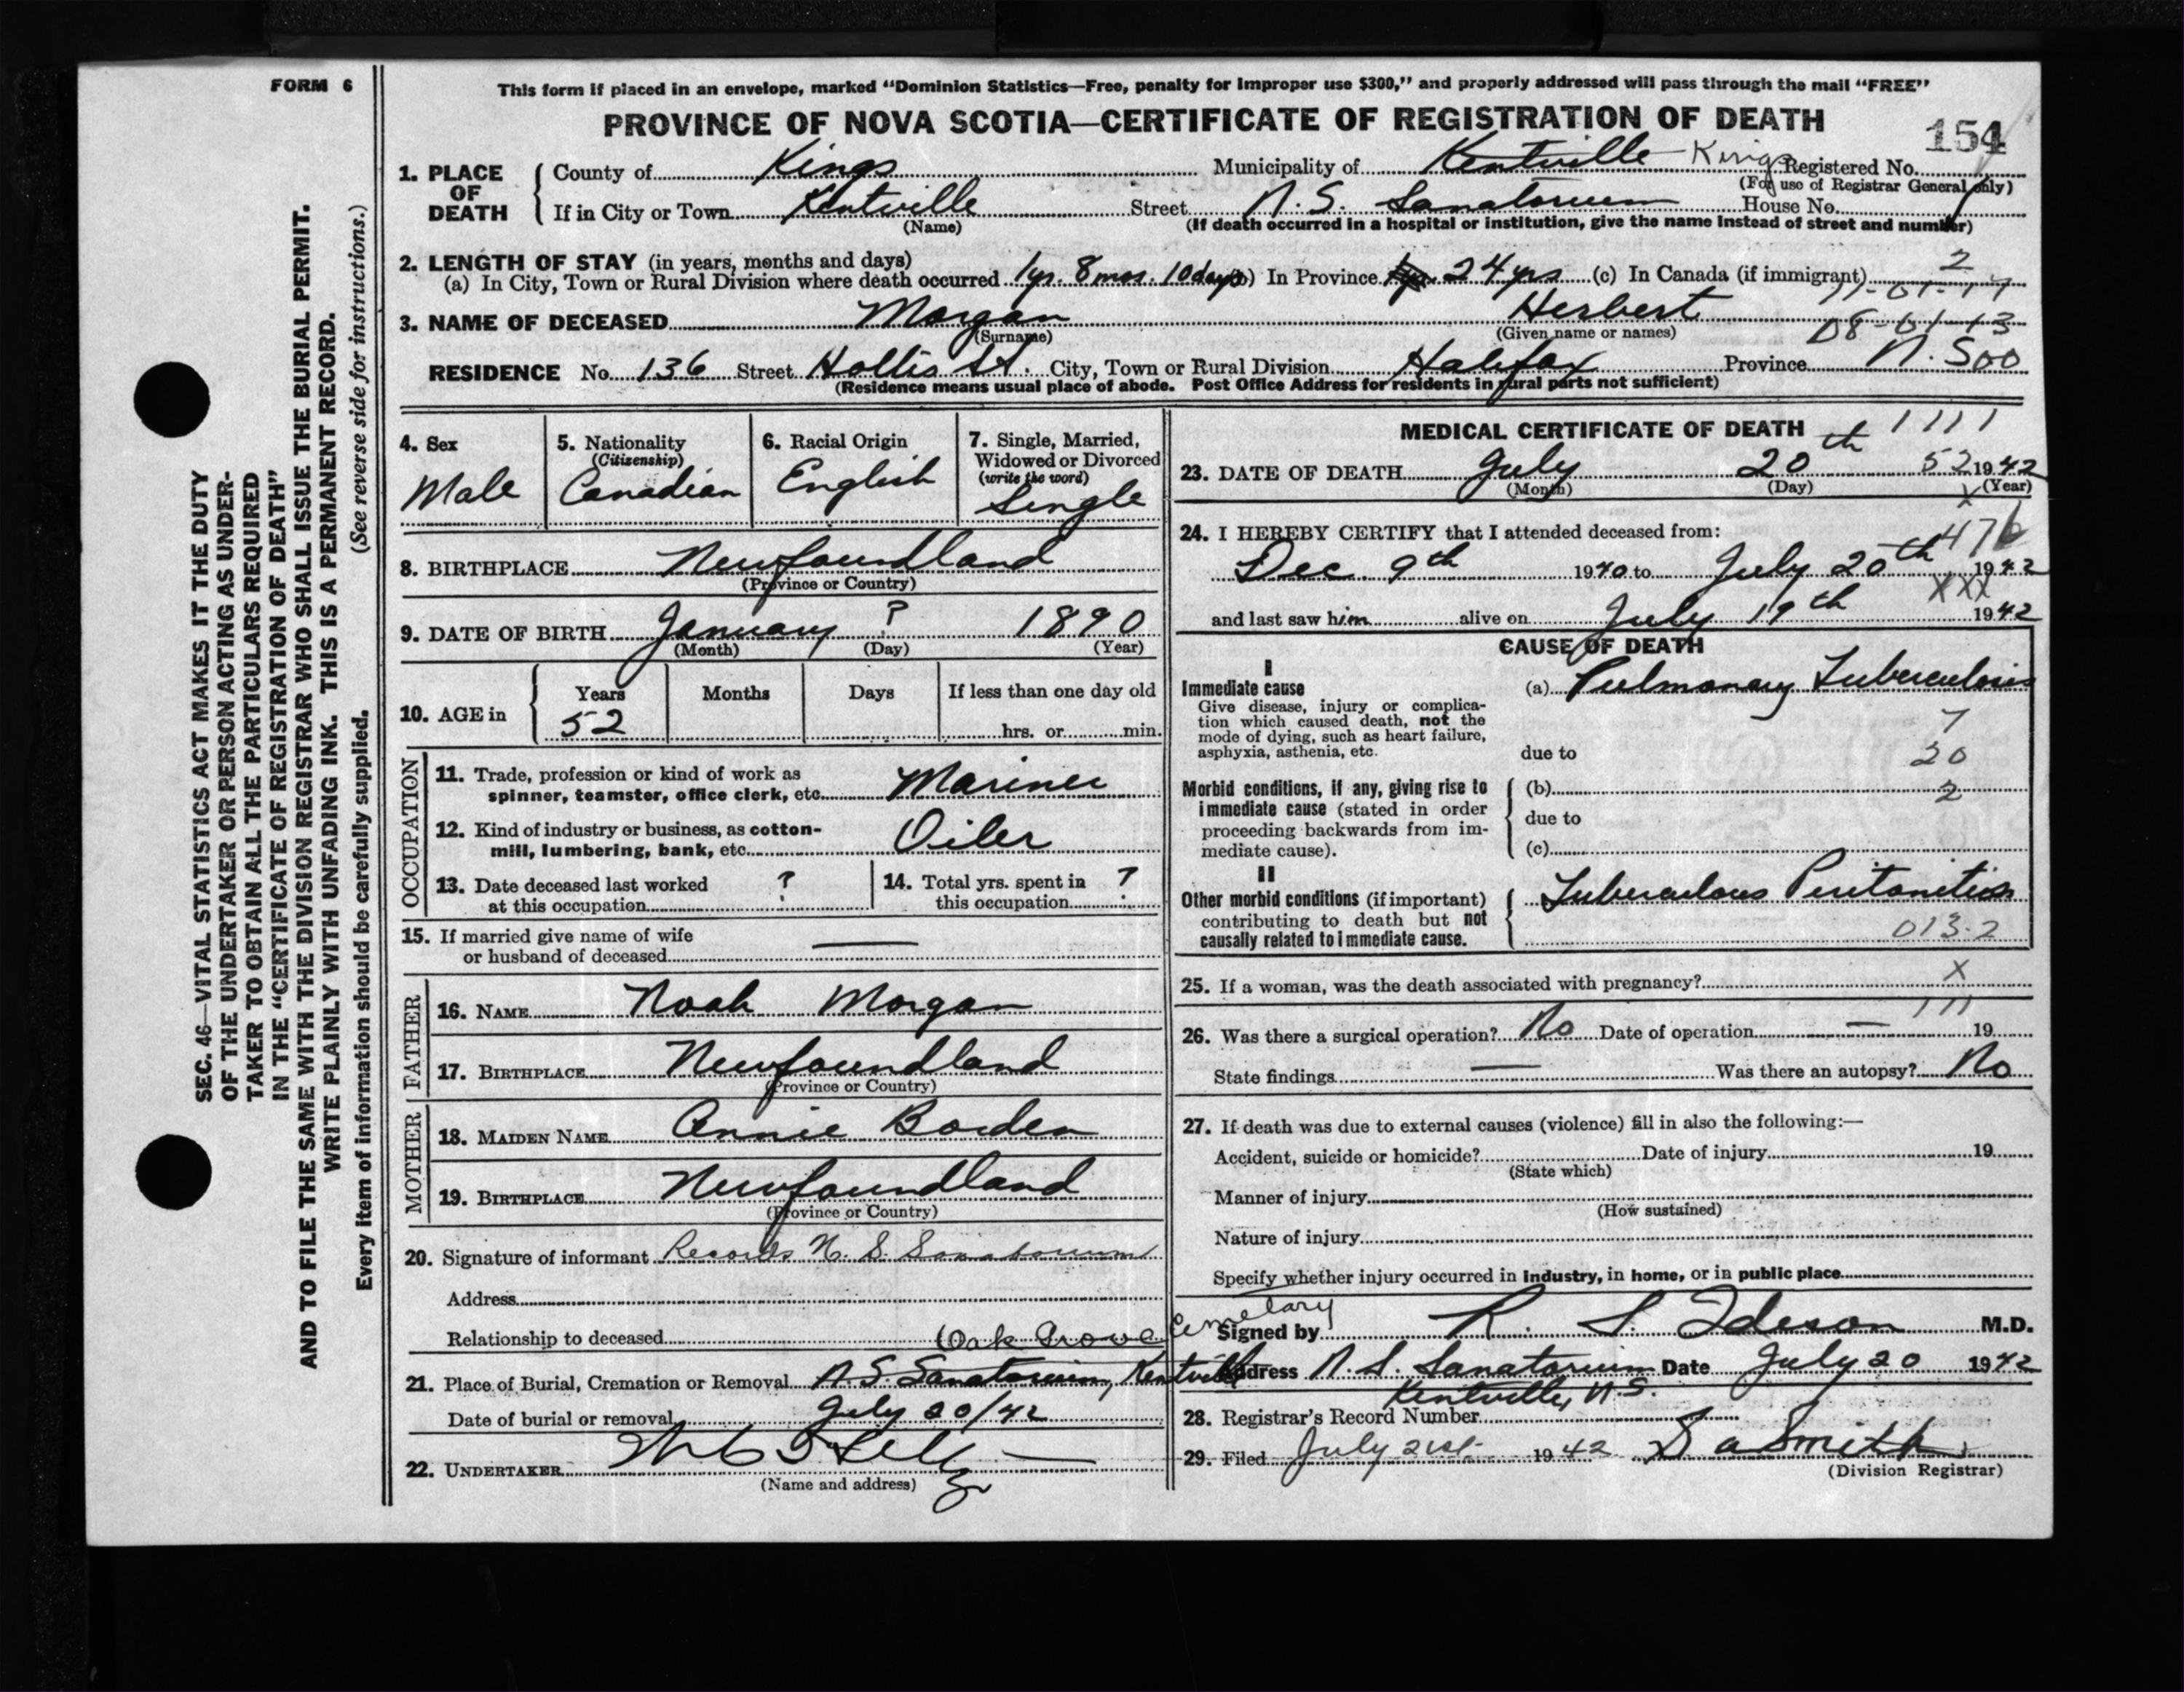 FORM 6
This form if placed in an envelope, marked “Dominion Statistics—Free, penalty for improper use $300,” and properly addressed will pass through the mail “FREE”
PROVINCE OF NOVA SCOTIA—CERTIFICATE OF REGISTRATION OF DEATH
154
1. PLACE OF DEATH
County of Kings Municipality of Kentville Kings Registered No.
(For use of Registrar General only)
If in City or Town Kentville Street N. S. Sanatorium House No.
(Name) (If death occurred in a hospital or institution, give the name instead of street and number)
2. LENGTH OF STAY (in years, months and days)
(a) In City, Town or Rural Division where death occurred 1 yr. 8 mos. 10 days (b) In Province 24 yrs (c) In Canada (if immigrant)
2
3. NAME OF DECEASED Morgan Herbert
(Surname) (Given name or names)
08-01-13
RESIDENCE No. 136 Street Hollis St. City, Town or Rural Division Halifax Province N. S 00
(Residence means usual place of abode. Post Office Address for residents in rural parts not sufficient)
4. Sex
Male
5. Nationality
(Citizenship)
Canadian
6. Racial Origin
English
7. Single, Married, Widowed or Divorced
(write the word)
Single
8. BIRTHPLACE Newfoundland
(Province or Country)
9. DATE OF BIRTH January ? 1890
(Month) (Day) (Year)
10. AGE in Years Months Days If less than one day old
52 hrs. or min.
OCCUPATION
11. Trade, profession or kind of work as
spinner, teamster, office clerk, etc. Mariner
12. Kind of industry or business, as cotton-
mill, lumbering, bank, etc. Oiler
13. Date deceased last worked
at this occupation ?
14. Total yrs. spent in
this occupation ?
15. If married give name of wife
or husband of deceased —
FATHER
16. NAME Noah Morgan
17. BIRTHPLACE Newfoundland
(Province or Country)
MOTHER
18. MAIDEN NAME Annie Borden
19. BIRTHPLACE Newfoundland
(Province or Country)
20. Signature of informant Records N. S. Sanatorium
Address
Relationship to deceased
Oak Grove Cemetary
21. Place of Burial, Cremation or Removal N. S. Sanatorium, Kentville
Date of burial or removal July 20/42
22. UNDERTAKER
(Name and address)
MEDICAL CERTIFICATE OF DEATH
1111
23. DATE OF DEATH July 20th 52 1942
(Month) (Day) (Year)
X
24. I HEREBY CERTIFY that I attended deceased from:
476
Dec. 9th 1940 to July 20th 1942
XXX
and last saw him alive on July 19th 1942
CAUSE OF DEATH
I
Immediate cause
Give disease, injury or complica-
tion which caused death, not the
mode of dying, such as heart failure,
asphyxia, asthenia, etc.
(a) Pulmonary Tuberculosis
7
due to
20
Morbid conditions, if any, giving rise to
immediate cause (stated in order
proceeding backwards from im-
mediate cause).
(b) 2
due to
(c)
II
Other morbid conditions (if important)
contributing to death but not
causally related to immediate cause.
Tuberculous Peritonitis
013.2
25. If a woman, was the death associated with pregnancy? X
111
26. Was there a surgical operation? No Date of operation — 19
State findings — Was there an autopsy? No
27. If death was due to external causes (violence) fill in also the following:—
Accident, suicide or homicide? Date of injury 19
(State which)
Manner of injury
(How sustained)
Nature of injury
Specify whether injury occurred in industry, in home, or in public place
Signed by R. S. Ideson M.D.
Address N. S. Sanatorium Date July 20 1942
Kentville, N. S.
28. Registrar's Record Number
29. Filed July 21st 1942 S a Smith
(Division Registrar)
SEC. 46—VITAL STATISTICS ACT MAKES IT THE DUTY
OF THE UNDERTAKER OR PERSON ACTING AS UNDER-
TAKER TO OBTAIN ALL THE PARTICULARS REQUIRED
IN THE “CERTIFICATE OF REGISTRATION OF DEATH”
AND TO FILE THE SAME WITH THE DIVISION REGISTRAR WHO SHALL ISSUE THE BURIAL PERMIT.
WRITE PLAINLY WITH UNFADING INK. THIS IS A PERMANENT RECORD.
Every item of information should be carefully supplied. (See reverse side for instructions.)